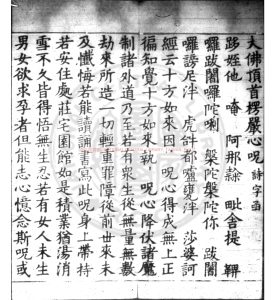 大佛頂首楞嚴心呪 詩字函
跢姪他 唵 阿那隸 毗舍提 鞞
囉跋闍囉陀唎 槃陀槃陀你 跋闍
囉謗尼泮 虎𤙖都嚧甕泮 莎婆訶
經云十方如來因 呪心得成無上正
徧知覺十方如來執 呪心降伏諸魔
制諸外道乃至若有衆生從無量無數
劫來所造一切輕重罪障從前世來未
及懺悔若能讀誦書寫此呪身上帶持
若安住處莊宅園館如是積業猶湯消
雪不久皆得悟無生忍若有女人未生
男女欲求孕者但能志心憶念斯呪或